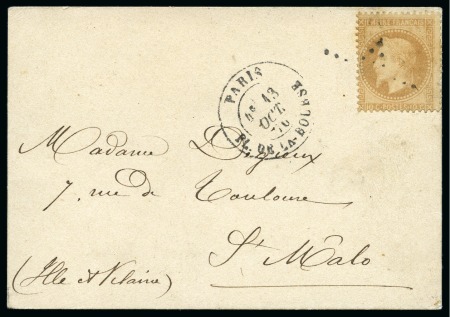 EMPIRE FRANÇAIS
PARIS
4E 13
OCT.
70
PL. DE LA BOURSE
Madame
7, rue de Toulouse
St Malo
(Ille et Vilaine)